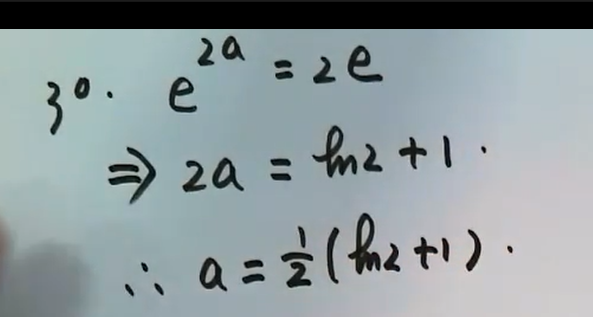 3°. e^{2a} = 2e
⇒ 2a = ln2 + 1.
∴ a = \frac{1}{2}(ln2 + 1).